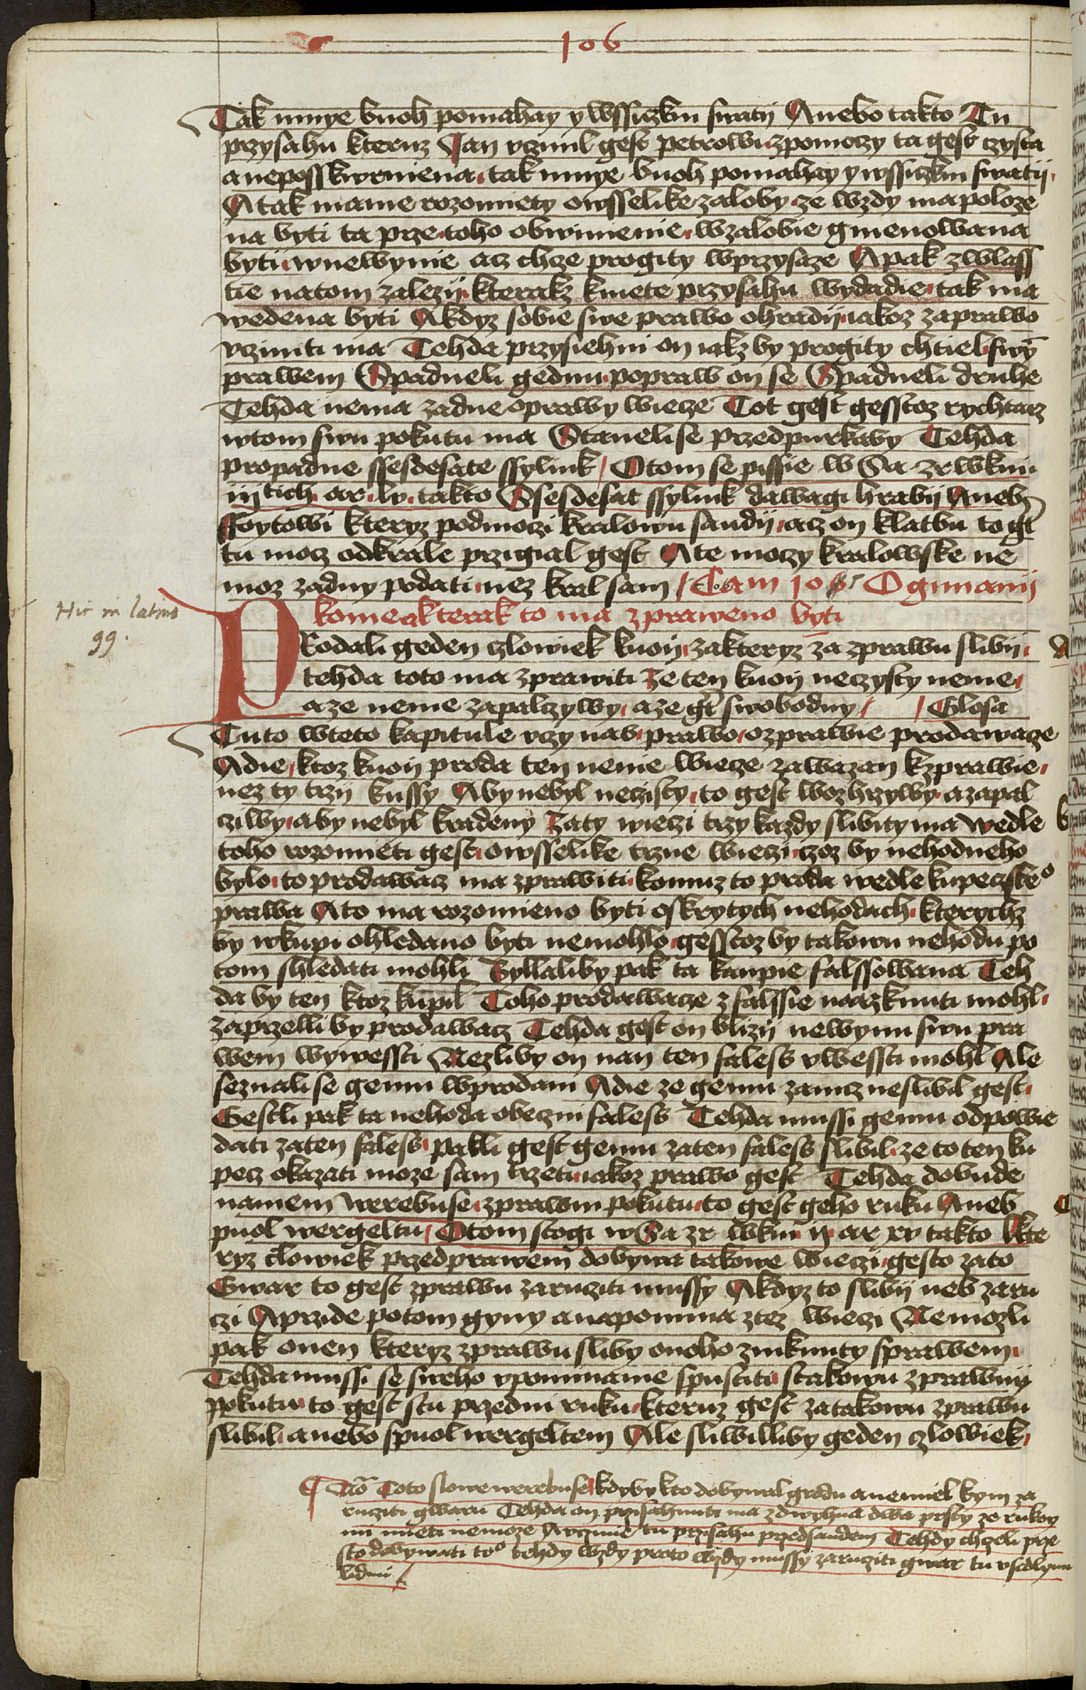 106
Tak mnye buoh pomahay y wssiczkni swatij Anebo takto Tu
przysahu kteruz Jan vczinil gest petrowi zpomoczy ta gest czysta
a neposskwrniena tak mnye buoh pomahay y wssiczkni swatij
A tak mame rozomiety owsselike zaloby ze wzdy ma poloze
na byti ta prze toho obwinienie w zalobie gmenowana
byti w newynie acz chze progity w przysaze A pak zwlass
tie na tom zalezij kterakz kmete przysahu wydadie tak ma
wedena byti A kdyz sobie swe prawo ohradij iakoz za prawo
vcziniti ma Tehda przysiehni on iakz by progity chtiel swym
prawem Spadneli gednu popraw on se Spadneli druhe
Tehda nema zadne oprawy wiecze Tot gest gesstoz rychtarz
w tom swu pokutu ma Staneli se przed purkaby Tehda
propadne ssesdesate ssylink / O tom se pissie w Sa zr w knih
iij tich ar lv takto Ssesdesat ssylink dawagi hrabij Aneb
ffoytowi kteryz pod moczi kralowu sandij acz on klatbu to gt
tu mocz od krale przigial gest A te moczy kralowske ne
moz zadny podati nez kral sam / Cam 106 O gimanij
kome a kterak to ma zpraweno byti
Hic in latino
99.
PRodali geden czlowiek kuon za kteryz za zprawu slibij
tehda toto ma zprawiti Ze ten kuon neczysty neme
a ze neme zapalczywy a ze gt swobodny / / Glosa
Tuto w teto kapitule vczy nas prawo o zprawie prodawacze
A die ktoz kuon proda ten neme wiecze zawazan k zprawie
nez ty trzij kussy Aby nebyl neczisty to gest wozhrzywy a zapal
cziwy a by nebyl kradeny Za ty wieczi trzy kazdy slibity ma wedle
toho rozomieti gest owsselike trzne wieczi czoz by nehodneho
bylo to prodawacz ma zprawiti komuz to proda wedle kupeczske°
prawa A to ma rozomieno byti o skrytych nehodach kterychz
by w kupi ohledano byti nemohlo gesstoz by takowu nehodu po
tom shledati mohli Byllaliby pak ta kaupie falssowana Teh
da by ten ktoz kupil Toho prodawacze z falssie narzknuti mohl
Zaprzelli by prodawacz Tehda gest on blizij newynu swu pra
wem wywessti Nezliby on nan ten faless vwessti mohl Ale
seznali se gemu w prodani A die ze gemu zanicz neslibil gest
Gestli pak ta nehoda obeczni faless Tehda mussi gemu odpowie
dati za ten faless pakli gest gemu za ten faless slibil ze to ten ku
pecz okazati moze sam trzeti iakoz prawo gest Tehda dobude
na niem werebuse zprawni pokutu to gest geho ruku Aneb
puol wergeltu / O tom stogi w Sa zr w knih ij ar xv takto Kte
ryz clowiek przed prawem dobywa takowe wieczi gesto za to
Gwar to gest zprawu zaruziti mussy A kdyz to slibij neb zaru
czi A przide potom gyny a napomina z tez wieczi Nemozli
pak onen kteryz zprawu sliby onoho zniknuty s prawem
Tehda mussi se sweho vpominanie spustiti s takowu zprawnij
pokutu to gest s tu przedni ruku kteruz gest za takowu zprawu
slibil anebo s puol wergeltem Ale sliwilliby geden czlowiek
Toto slowe werebuse kdyby kto dobywal gradu a nemiel kym za
ruziti gwaru Tehda on przisahnuti ma zdwyhna dwa prsty ze rukoy
mi mieti nemoze A vczinie tu przisahu przed saudem Tehdy chzeli prze
sto dobywati to° tehdy wzdy proto wzdy mussy zaruziti gwar tu vsedlymi
lidmi